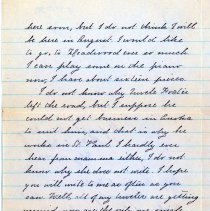 here soon, but I do not think I will
be here in August. I would like
to go, to Deadwood ever so much
I can play some on the piano
now, I have about sixteen pieces
I do not know why Uncle
left the road, but I suppose he
could not get business in
to suit him, and that is why he
works in St. Paul. I hardly ever
hear from mamma either, I do not
know why she does not write. I hope
you will write to me as often as you
can. Well, all of my Aunties are getting
married now are the only one single